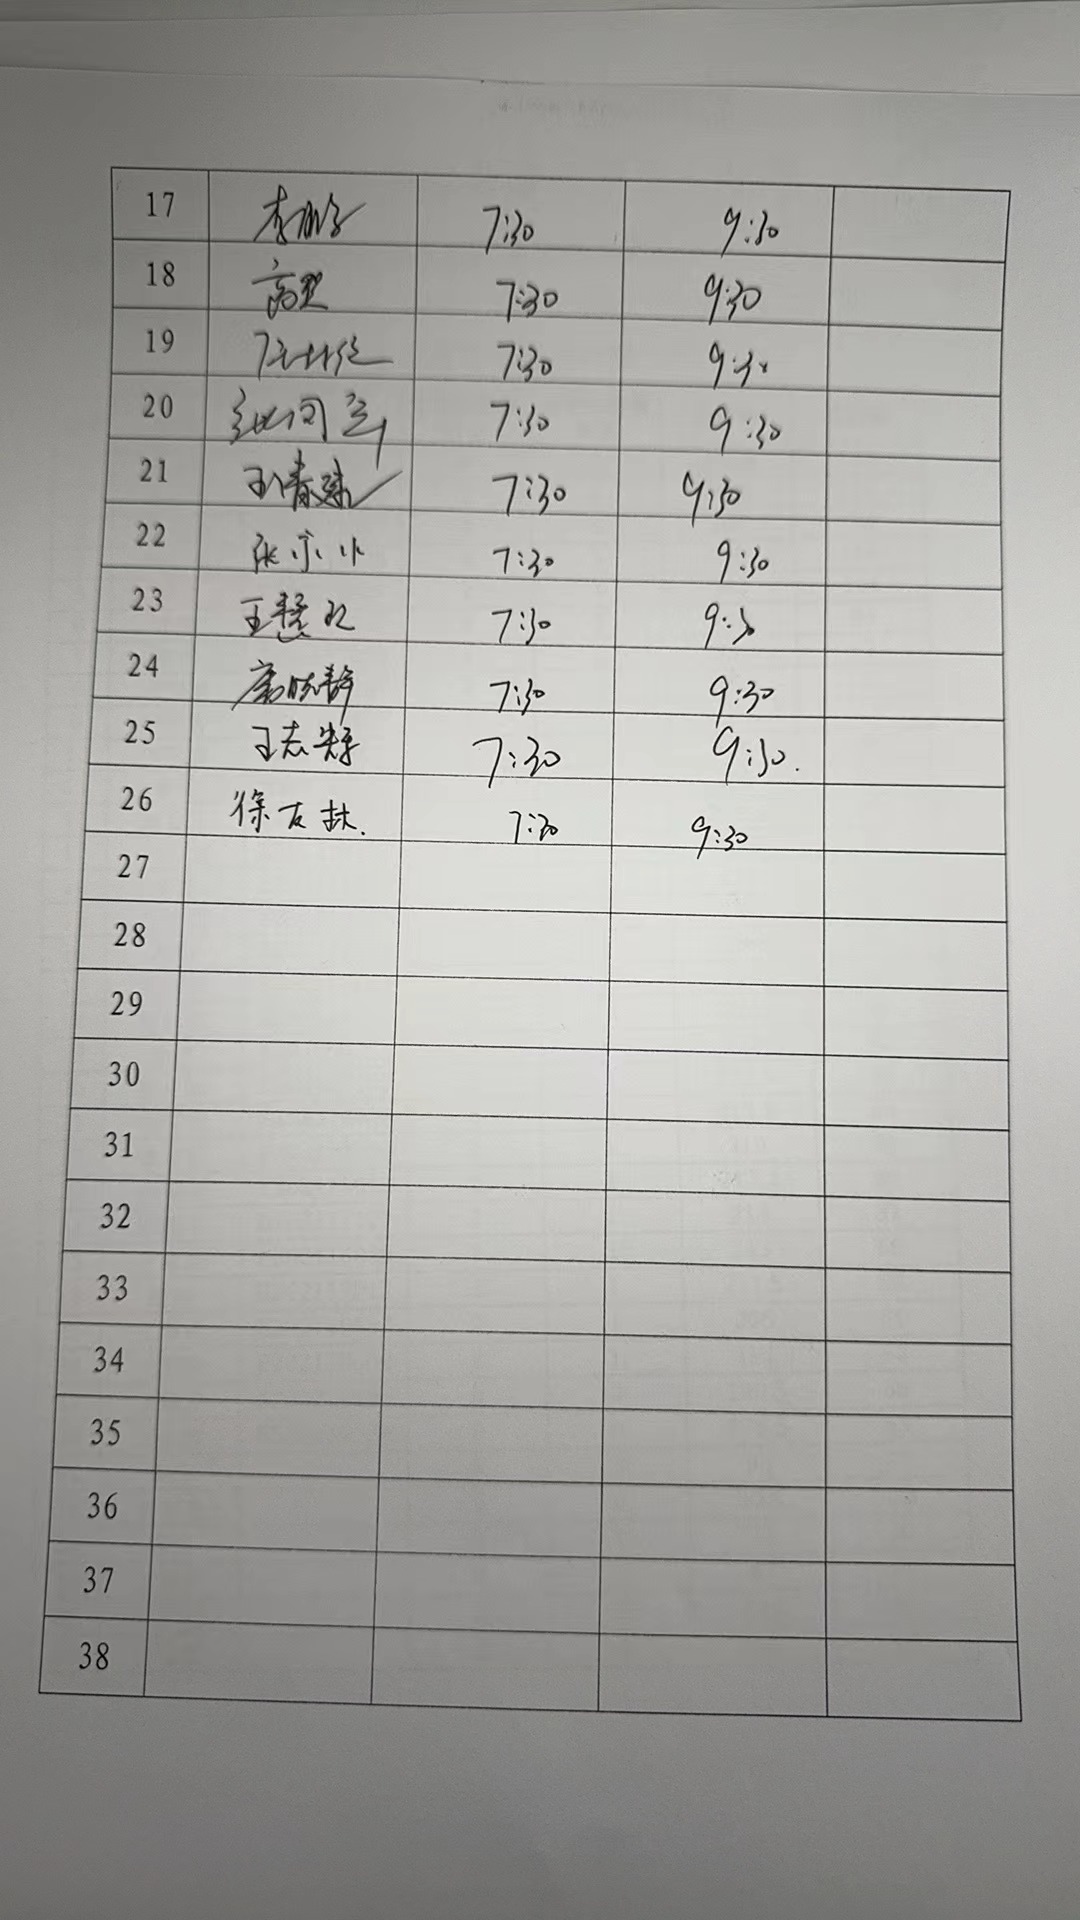 17 李鹏 7:30 9:30
18 高 7:30 9:30
19 7:30 9:30
20 7:30 9:30
21 春 7:30 9:30
22 张 7:30 9:30
23 王慧 7:30 9:30
24 晓静 7:30 9:30
25 王志辉 7:30 9:30.
26 徐友 7:30 9:30
27
28
29
30
31
32
33
34
35
36
37
38